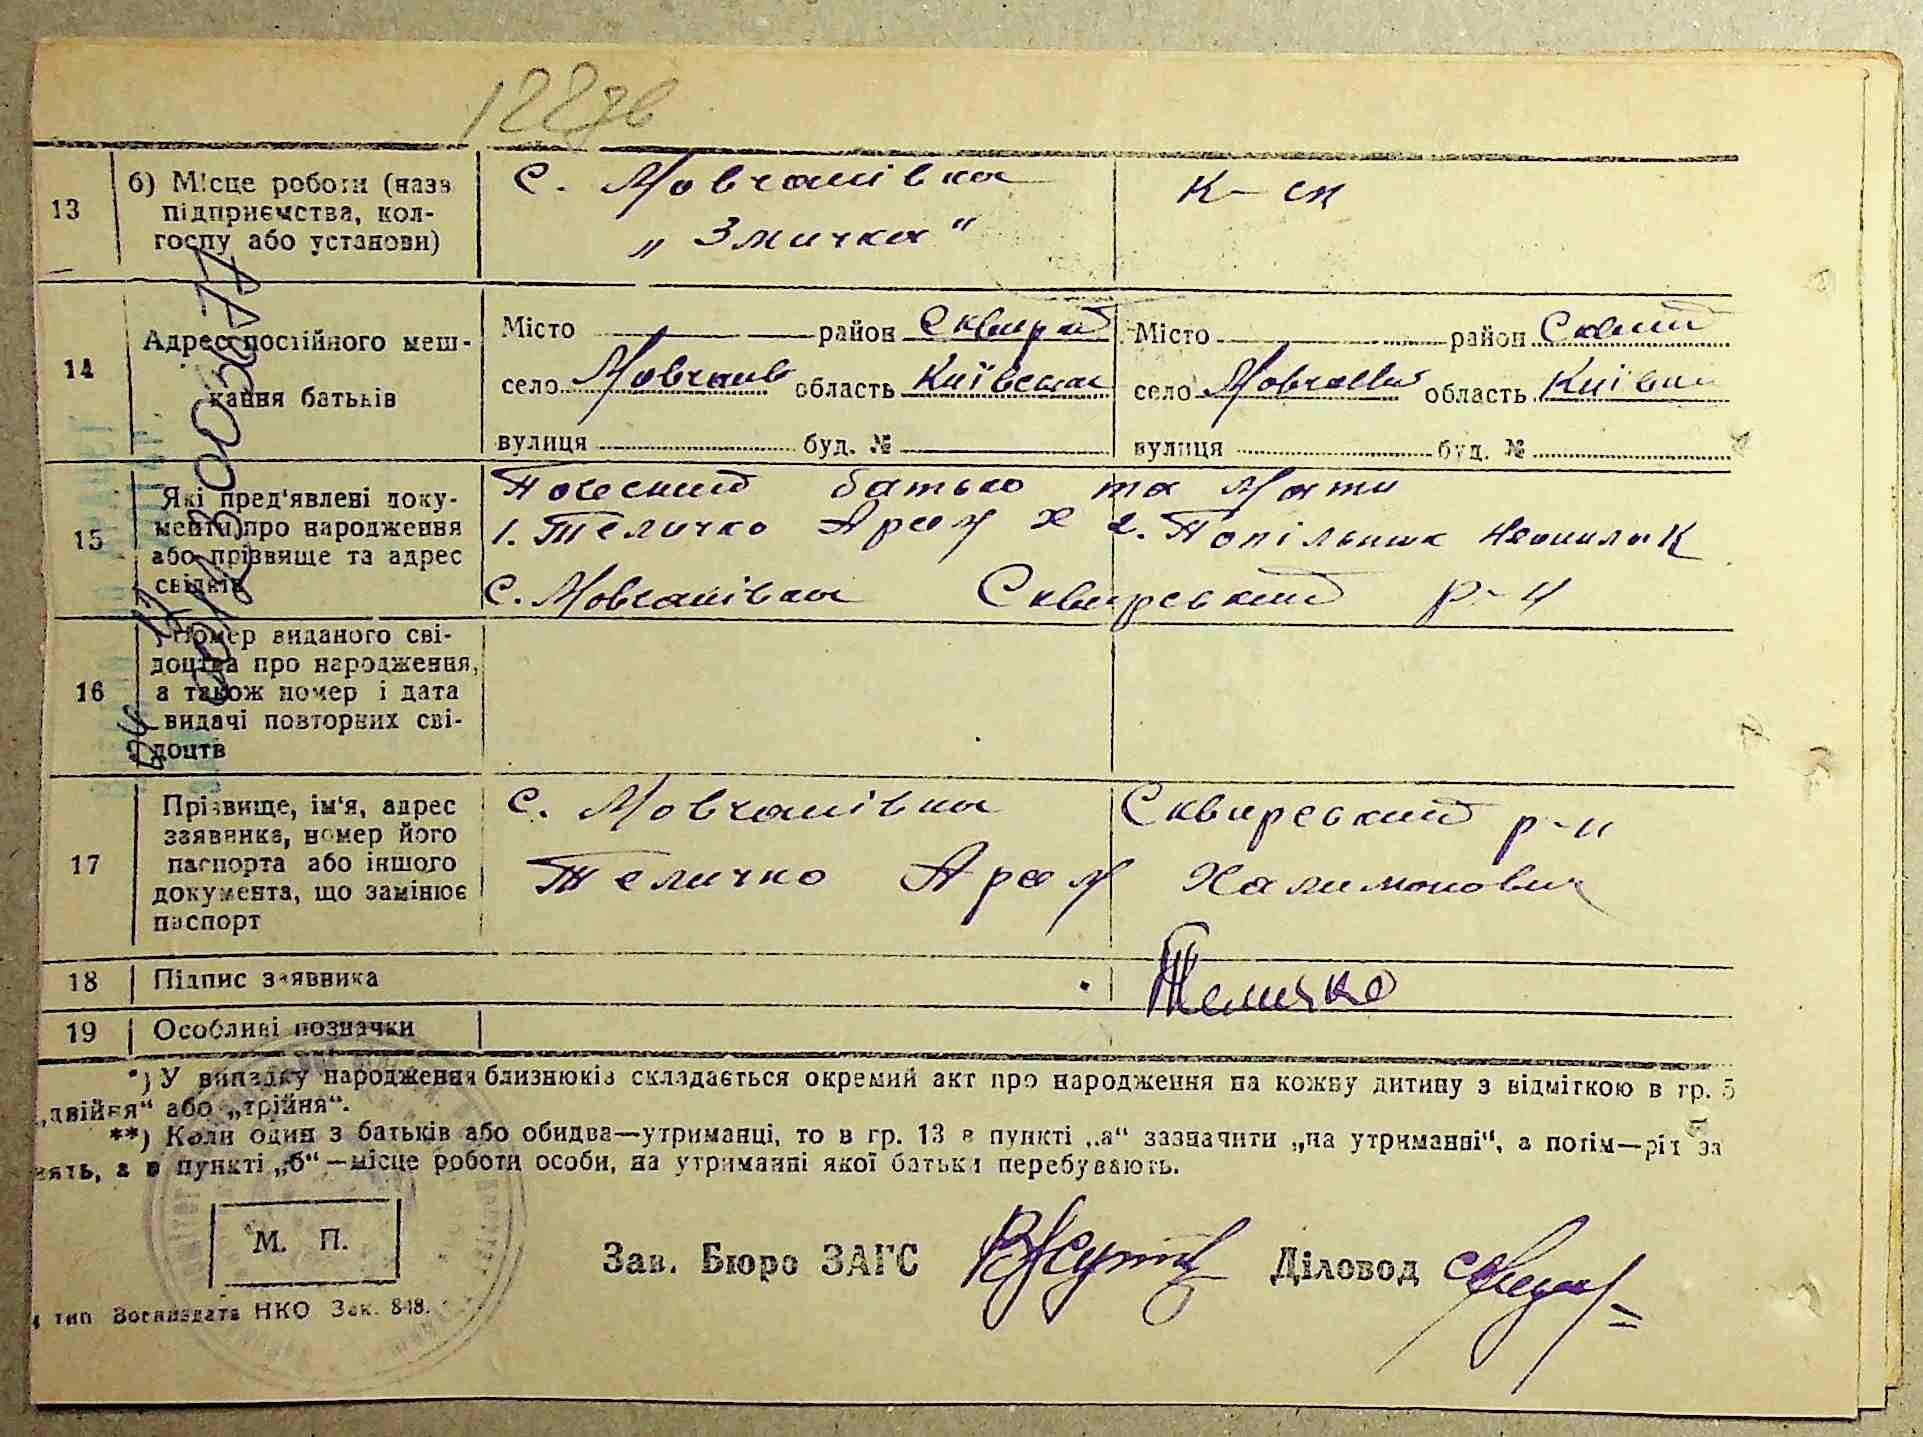 122зв
13 б) Місце роботи (назв С. Мовчанівка К-ск
підприємства, кол- „Змичка“
госпу або установи)
14 Адрес постійного меш- Місто район Сквирсь Місто район
кання батьків село Мовчанів область Київська село область Київ
вулиця буд. № вулиця буд. №
15 Які пред'явлені доку- батько та Мати
менти про народження 1. Теличко Х 2. Попільнюк К
або прізвище та адрес
свідків С. Мовчанівка Сквирський р-н
16 Номер виданого сві-
доцтва про народження,
а також номер і дата
видачі повторних сві-
доцтв
17 Прізвище, ім'я, адрес с. Мовчанівка Сквирський р-н
заявника, номер його
паспорта або іншого Теличко Халимонович
документа, що замінює
паспорт
18 Підпис заявника Теличко
19 Особливі позначки
*) У випадку народження близнюків складається окремий акт про народження на кожну дитину з відміткою в гр. 5
„двійня“ або „трійня“.
**) Коли один з батьків або обидва—утриманці, то в гр. 13 в пункті „а“ зазначити „на утриманні“, а потім—рід за
нять, а в пункті „б“—місце роботи особи, на утриманні якої батьки перебувають.
М. П.
Зав. Бюро ЗАГС Діловод
тип Воениздата НКО Зак. 848.